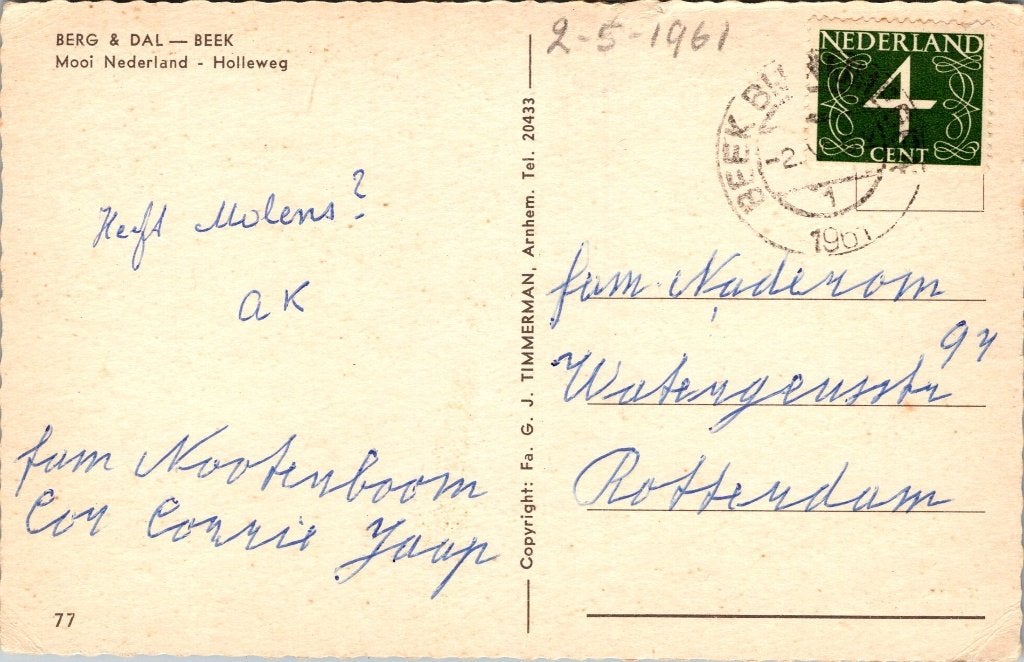 BERG & DAL — BEEK
Mooi Nederland - Holleweg
2-5-1961
NEDERLAND
4
CENT
BEEK BIJ
-2.
1
1961
Molens?
a K
fam Nootenboom
Cor Corrie Jaap
77
Copyright: Fa. G. J. TIMMERMAN, Arnhem. Tel. 20433
fam Naderom
Watergeusstr 97
Rotterdam